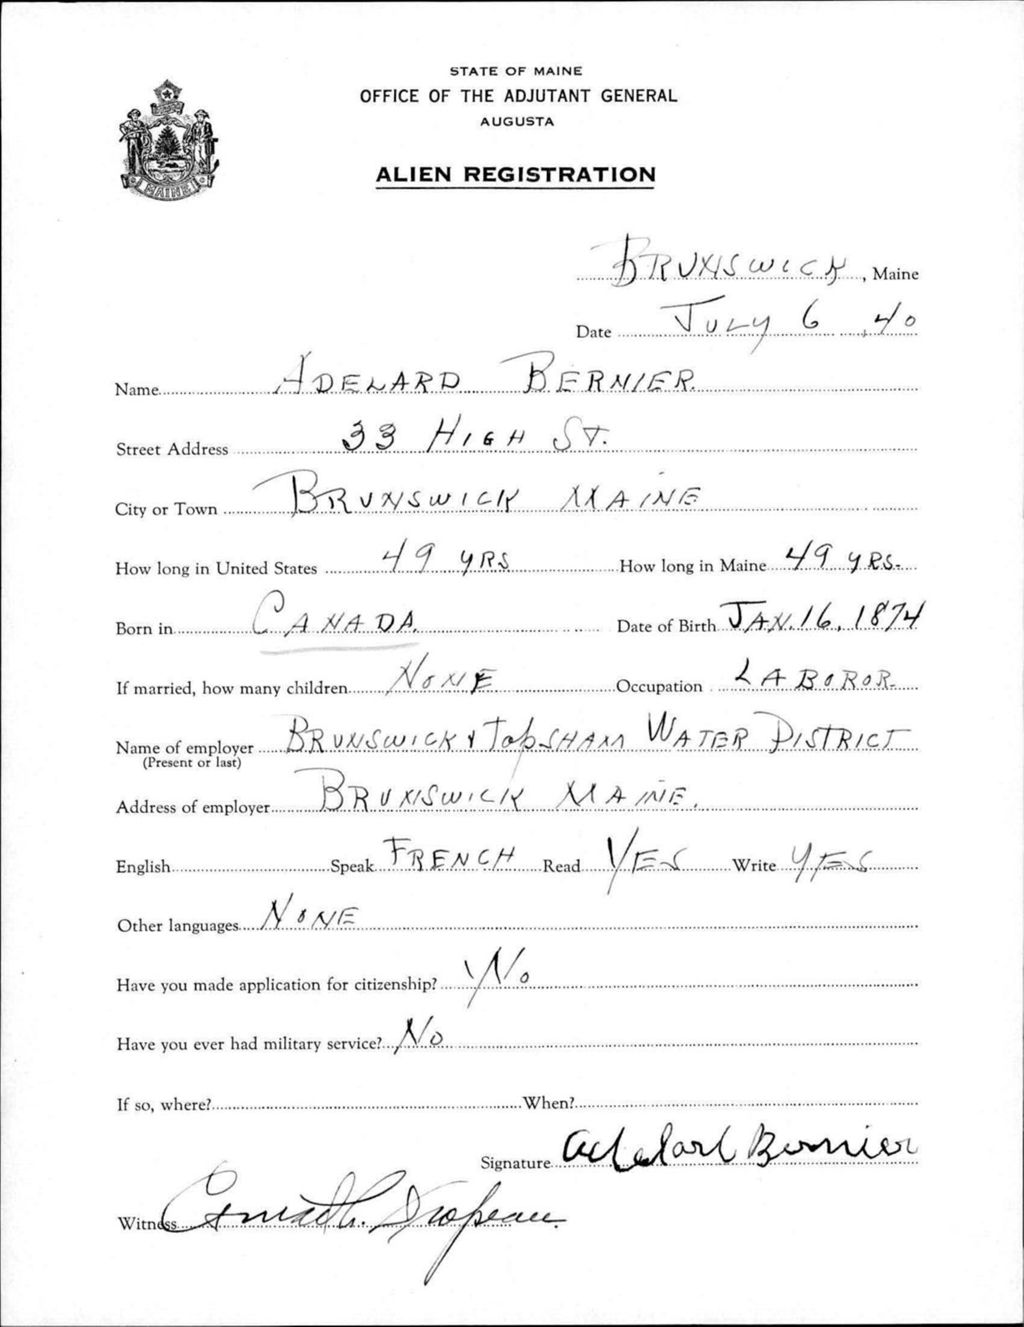 STATE OF MAINE
OFFICE OF THE ADJUTANT GENERAL
AUGUSTA
ALIEN REGISTRATION
MAINE
BRUNSWICK, Maine
Date JULY 6, 40
Name ADELARD BERNIER
Street Address 33 HIGH ST.
City or Town BRUNSWICK MAINE
How long in United States 49 YRS How long in Maine 49 YRS.
Born in CANADA Date of Birth JAN. 16, 1874
If married, how many children NONE Occupation LABOROR
Name of employer BRUNSWICK & TOPSHAM WATER DISTRICT
(Present or last)
Address of employer BRUNSWICK MAINE.
English Speak FRENCH Read YES Write YES
Other languages NONE
Have you made application for citizenship? No
Have you ever had military service? No
If so, where? When?
Signature Adelard Bernier
Witness Drapeau